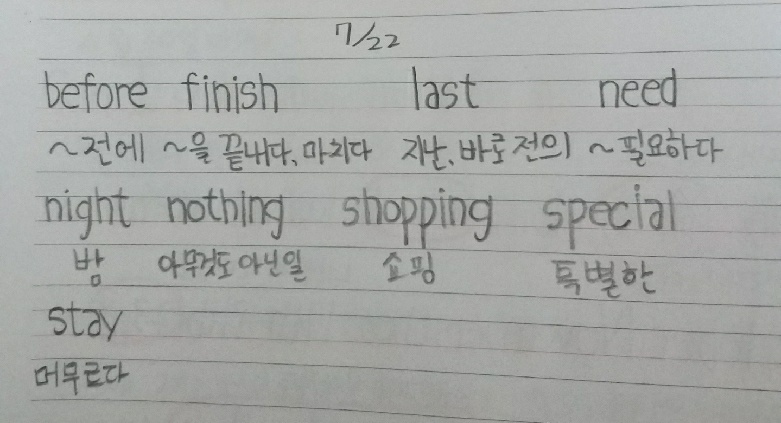 7/22
before finish last need
~전에 ~을 끝내다, 마치다 지난, 바로 전의 ~필요하다
night nothing shopping special
밤 아무것도 아닌일 쇼핑 특별한
stay
머무르다